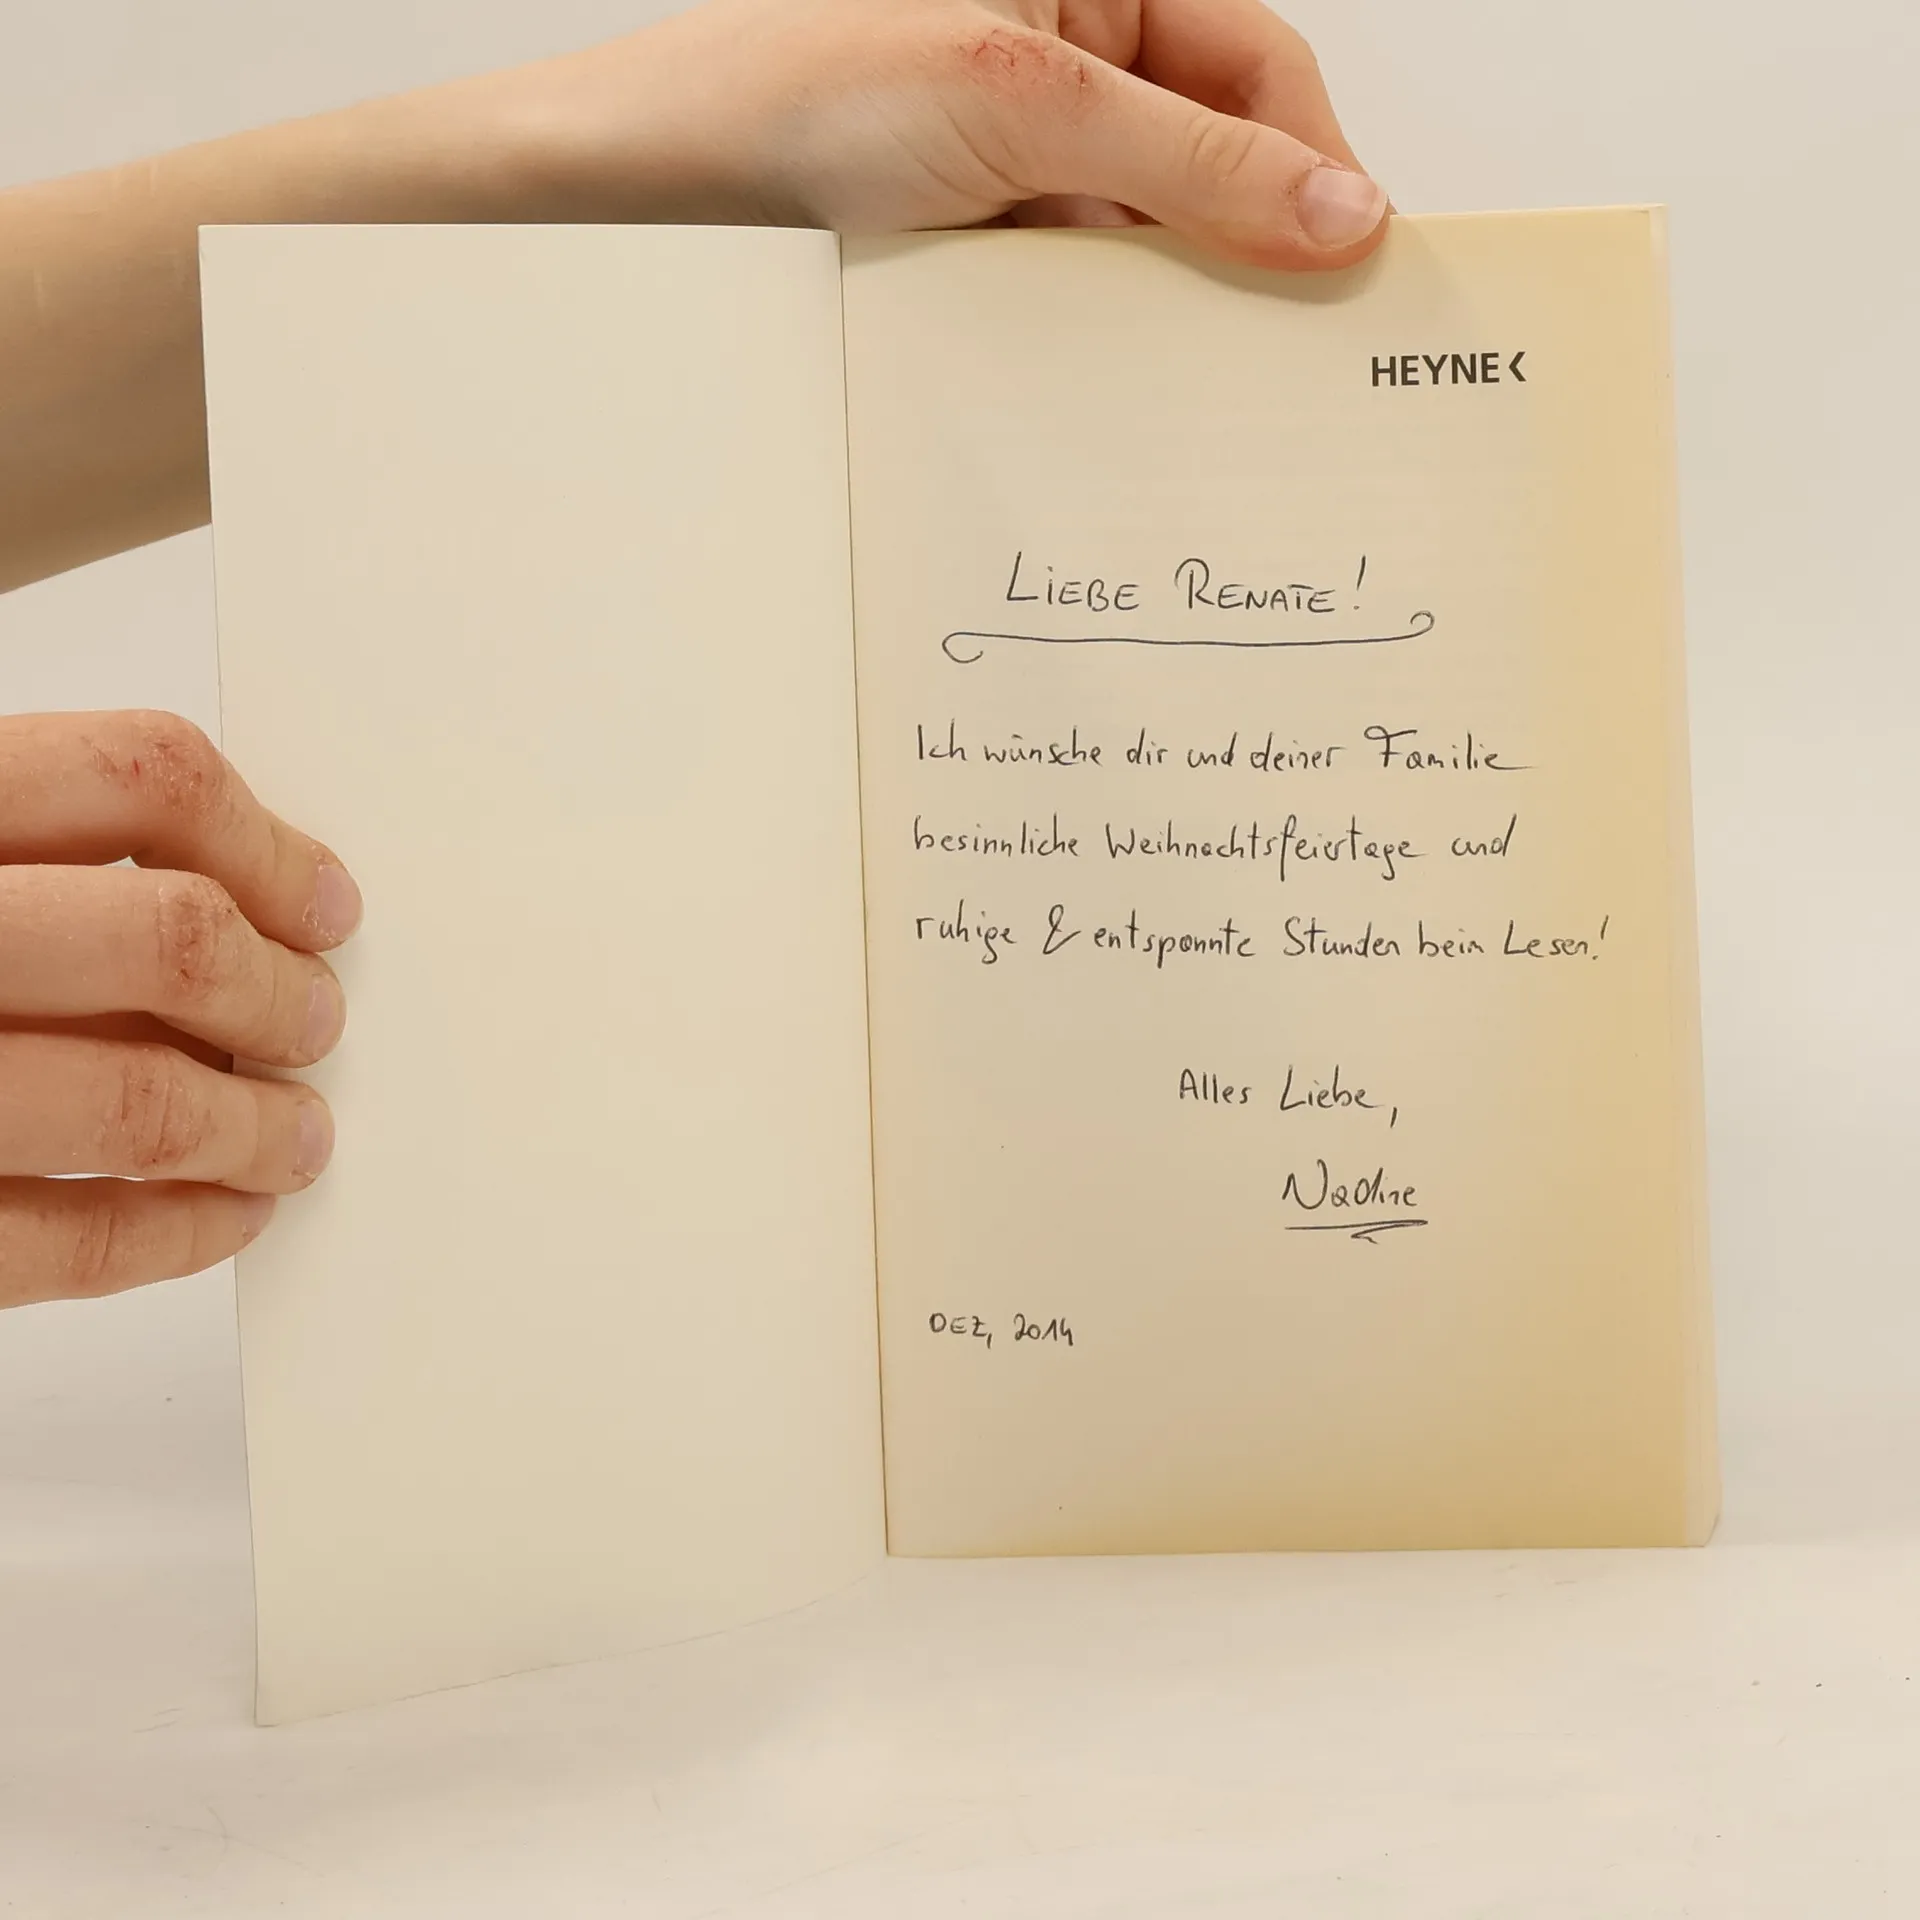 HEYNE<
LiEBE RENATE!
Ich wünsche dir und deiner Familie
besinnliche Weihnachtsfeiertage und
ruhige & entspannte Stunden beim Lesen!
Alles Liebe,
Nadine
DEZ, 2014